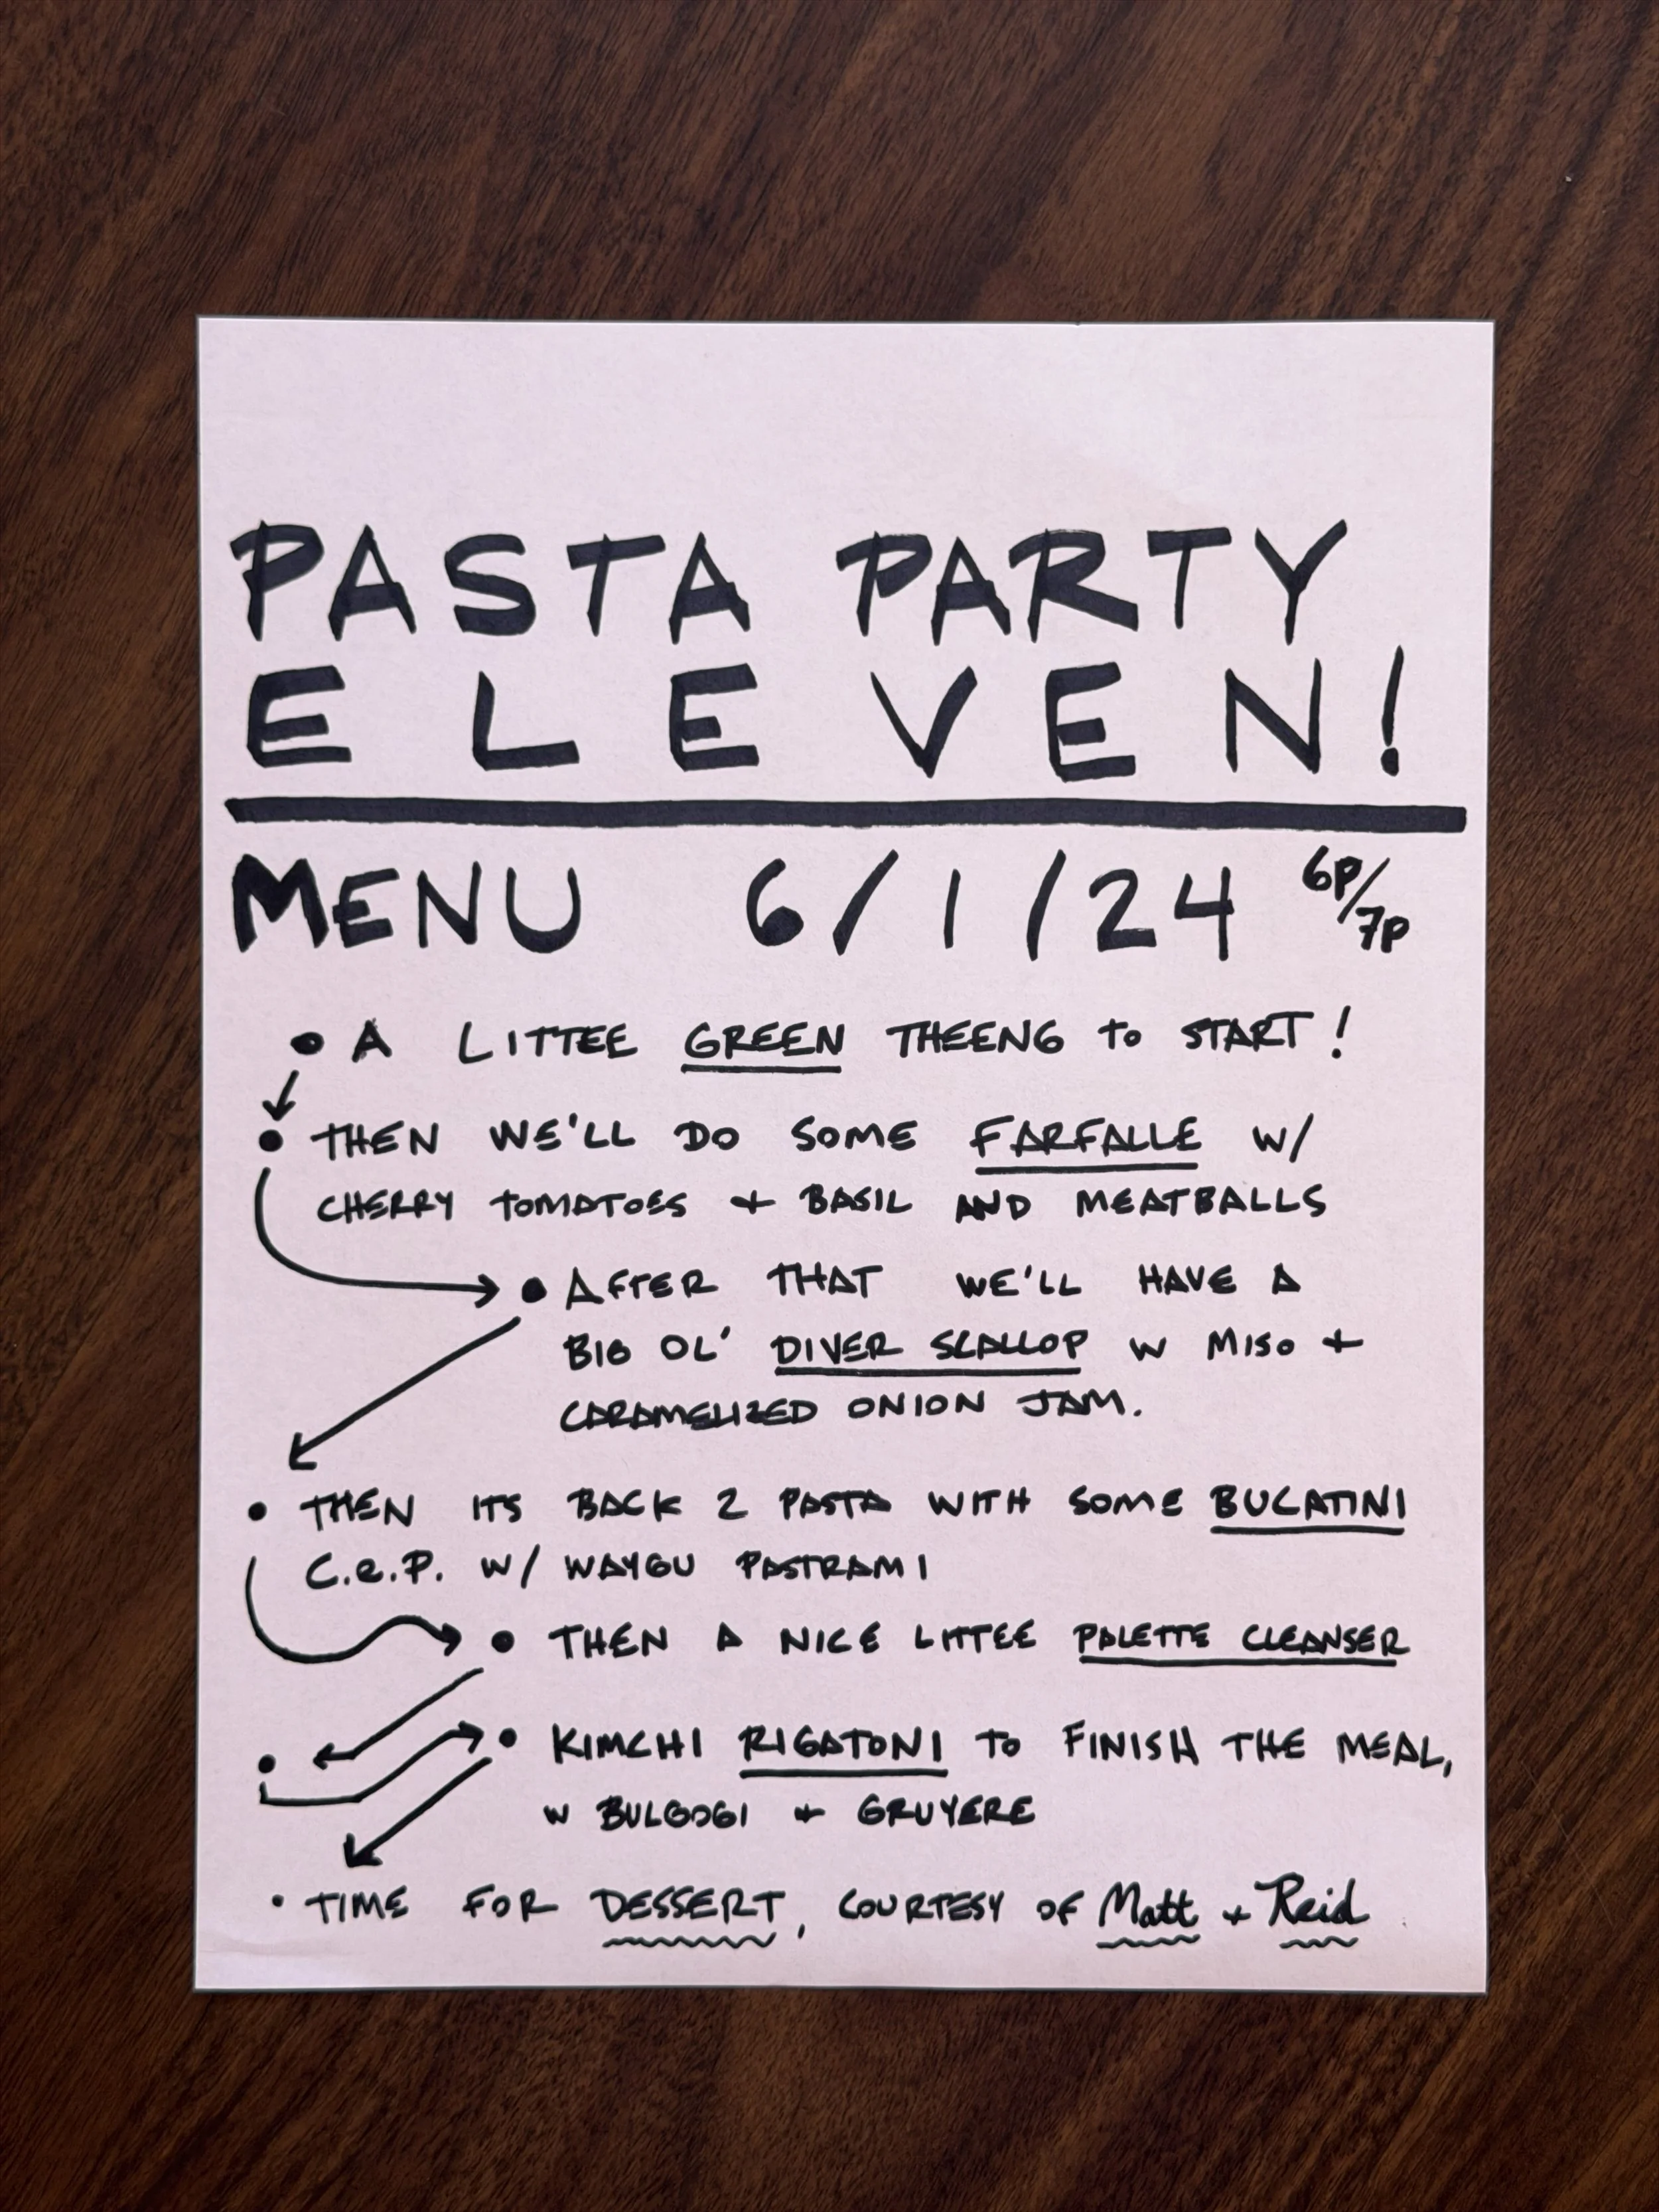 PASTA PARTY
ELEVEN!
MENU 6/1/24 6P/7P
• A LITTEE GREEN THEENG to START!
• THEN WE'LL DO SOME FARFALLE W/
CHERRY TOMATOES + BASIL AND MEATBALLS
• AFTER THAT WE'LL HAVE A
BIG OL' DIVER SCALLOP W MISO +
CARAMELIZED ONION JAM.
• THEN ITS BACK 2 PASTA WITH SOME BUCATINI
C.e.P. W/ WAYGU PASTRAMI
• THEN A NICE LITTEE PALETTE CLEANSER
• KIMCHI RIGATONI TO FINISH THE MEAL,
W BULGOGI + GRUYERE
• TIME FOR DESSERT, COURTESY OF Matt + Reid